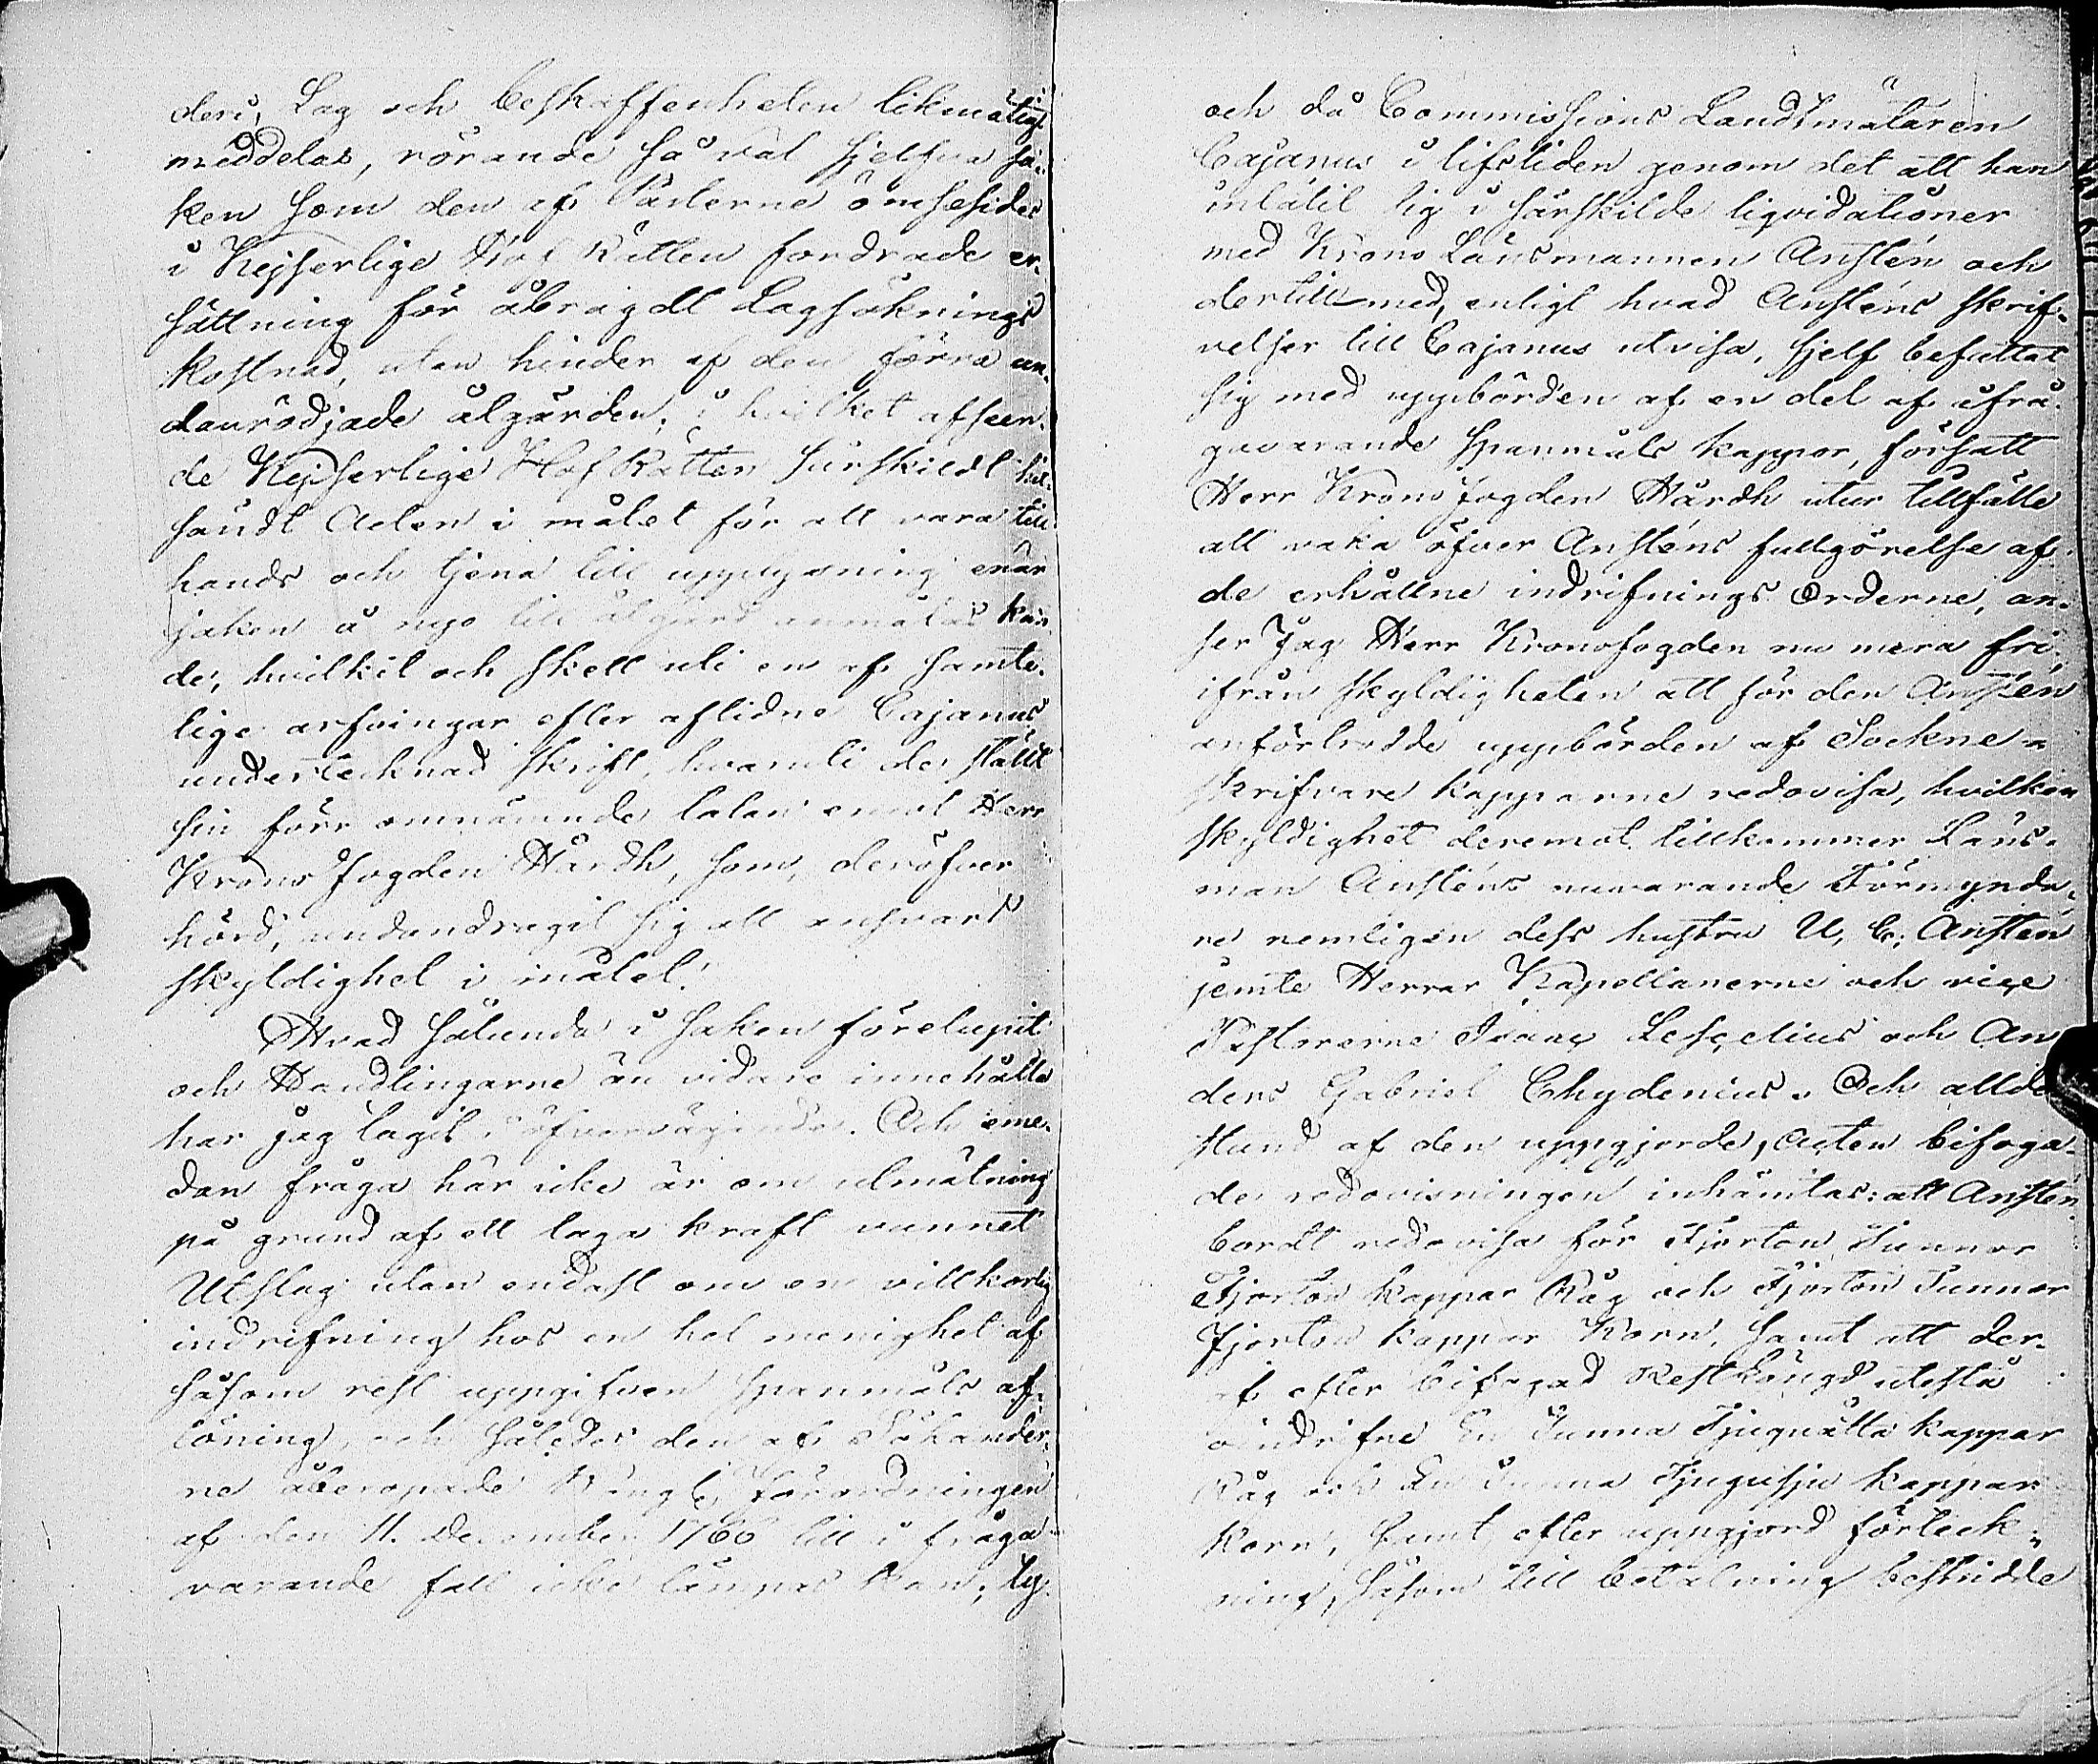 deri, Lag och beskaffenheten likmätig
meddelas, rörande så väl sjelfva sa-
ken som den af Parterne ömsesides
i Kejserlige Hof Rätten fordrade er-
sättning för åbragdt Lagsöknings
kostnad, utan hinder af den förra un-
danrödjade åtgärden; i hvilket afseen-
de Kejserlige Hof Rätten särskildt
sändt Acten i målet för att vara till
hands och tjena till upplysning enär
saken å nyo till åtgärd anmälas kun-
de, hvilket och skett uti en af samte-
lige arfvingar efter aflidne Cajanus
undertecknad skrift, hvaruti de ställt
sin förr omnämnde talan emot Herr
Krono Fogden Hårdh, som, deröfver
hörd, undandragit sig all ansvars
skyldighet i målet.
Hvad sålunda i saken förelupit
och Handlingarne än vidare innehålla
har jag tagit i öfvervägande. Och eme-
dan fråga här icke är om utmätning
på grund af ett laga kraft vunnet
Utslag utan endast om en villkorlig
indrifning hos en hel menighet af
såsom rest uppgifven Spanmåls af-
löning, och således den af Sökander-
ne åberopade Kongl. Förordningen
af den 11. December 1766 till i fråga
varande fall icke lämpas kan; ty
och då Commissions Landtmätaren
Cajanus i lifstiden genom det att han
inlåtit sig i särskilde liqvidationer
med Krono Länsmannen Anstén och
dertill med, enligt hvad Ansténs skrif-
velser till Cajanus utvisa, sjelf befattat
sig med uppbörden af en del af ifrå-
gavarande Spanmåls kappor, försatt
Herr Krono Fogden Hårdh utur tillfälle
att vaka öfver Ansténs fullgörelse af
de erhållne indrifnings Orderne, an-
ser Jag Herr Kronofogden nu mera fri
ifrån skyldigheten att för den Anstén
anförtrodde uppbörden af Sockne-
skrifvare kapparne redovisa, hvilken
skyldighet deremot tillkommer Läns-
man Ansténs nuvarande Förmynda-
re nemligen dess hustru U. C. Anstén
jemte Herrar Kapellanerne och vice
Pastorerne Franz Lescelius och An
ders Gabriel Chydenius. Och allde
stund af den uppgjorde, Acten bifoga-
de redovisningen inhämtas: att Anstén
bordt redovisa för Fjorton Tunnor
Fjorton kappar Råg och Fjorton Tunnor
Fjorton kappar Korn, samt att der-
af efter bifogad Restlängd utestå
oindrifne En Tunna Tjuguåtta kappar
Råg och En Tunna Tjugusju kappar
Korn, samt efter uppgjord förteck-
ning, såsom till betalning bestridde